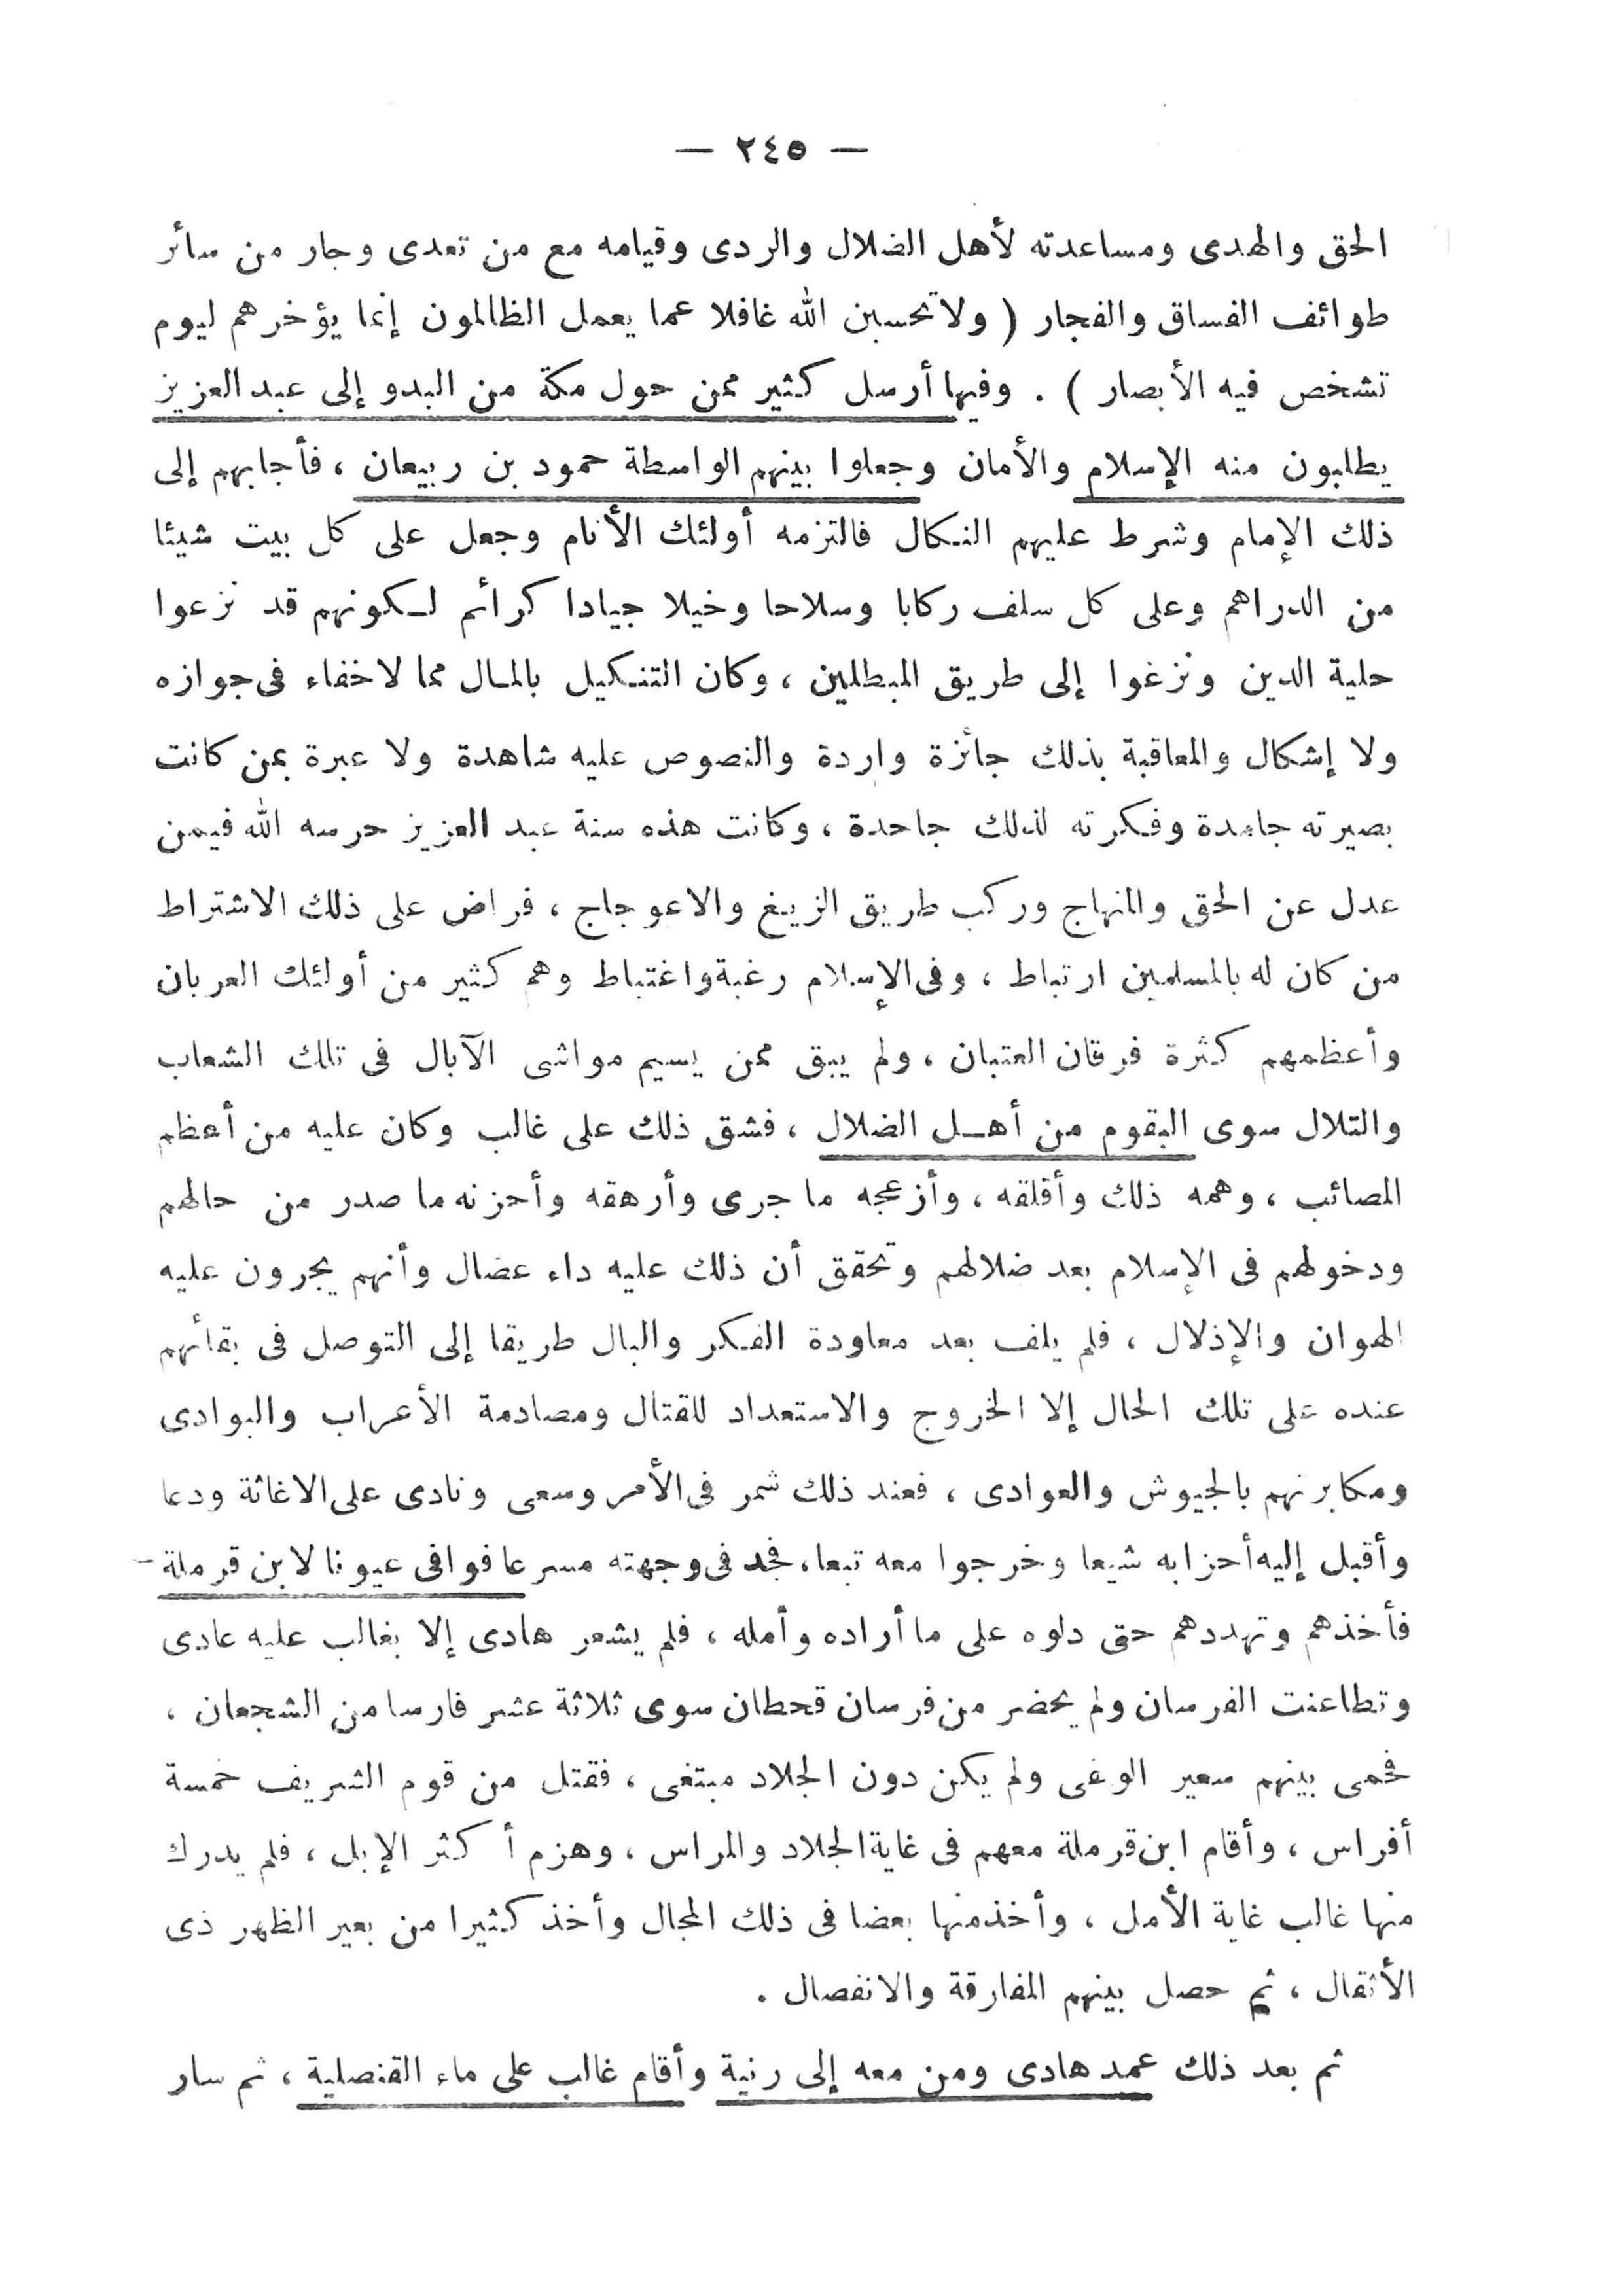 — ٢٤٥ —
الحق والهدى ومساعدته لأهل الضلال والردى وقيامه مع من تعدى وجار من سائر
طوائف الفساق والفجار ( ولا تحسبن الله غافلا عما يعمل الظالمون إنما يؤخرهم ليوم
تشخص فيه الأبصار ) . وفيها أرسل كثير ممن حول مكة من البدو إلى عبد العزيز
يطلبون منه الإسلام والأمان وجعلوا بينهم الواسطة حمود بن ربيعان ، فأجابهم إلى
ذلك الإمام وشرط عليهم النكال فالتزمه أولئك الأنام وجعل على كل بيت شيئا
من الدراهم وعلى كل سلف ركابا وسلاحا وخيلا جيادا كرائم لكونهم قد نزعوا
حلية الدين ونزغوا إلى طريق المبطلين ، وكان التنكيل بالمال مما لا خفاء فى جوازه
ولا إشكال والمعاقبة بذلك جائزة واردة والنصوص عليه شاهدة ولا عبرة بمن كانت
بصيرته جامدة وفكرته لذلك جاحدة ، وكانت هذه سنة عبد العزيز حرسه الله فيمن
عدل عن الحق والمنهاج وركب طريق الزيغ والاعوجاج ، فراض على ذلك الاشتراط
من كان له بالمسلمين ارتباط ، وفى الإسلام رغبة واغتباط وهم كثير من أولئك العربان
وأعظمهم كثرة فرقان العتبان ، ولم يبق ممن يسيم مواشى الآبال فى تلك الشعاب
والتلال سوى البقوم من أهل الضلال ، فشق ذلك على غالب وكان عليه من أعظم
المصائب ، وهمه ذلك وأقلقه ، وأزعجه ما جرى وأرهقه وأحزنه ما صدر من حالهم
ودخولهم فى الإسلام بعد ضلالهم وتحقق أن ذلك عليه داء عضال وأنهم يجرون عليه
الهوان والإذلال ، فلم يلف بعد معاودة الفكر والبال طريقا إلى التوصل فى بقائهم
عنده على تلك الحال إلا الخروج والاستعداد للقتال ومصادمة الأعراب والبوادى
ومكابرتهم بالجيوش والعوادى ، فعند ذلك شمر فى الأمر وسعى ونادى على الاغاثة ودعا
وأقبل إليه أحزابه شيعا وخرجوا معه تبعا، فجد فى وجهته مسرعا فوافى عيونا لابن قرملة
فأخذهم وتهددهم حتى دلوه على ما أراده وأمله ، فلم يشعر هادى إلا بغالب عليه عادى
وتطاعنت الفرسان ولم يحضر من فرسان قحطان سوى ثلاثة عشر فارسا من الشجعان ،
فحمى بينهم سعير الوغى ولم يكن دون الجلاد مبتغى ، فقتل من قوم الشريف خمسة
أفراس ، وأقام ابن قرملة معهم فى غاية الجلاد والمراس ، وهزم أكثر الإبل ، فلم يدرك
منها غالب غاية الأمل ، وأخذ منها بعضا فى ذلك المجال وأخذ كثيرا من بعير الظهر ذى
الأثقال ، ثم حصل بينهم المفارقة والانفصال .
ثم بعد ذلك عمد هادى ومن معه إلى رنية وأقام غالب على ماء القنصلية ، ثم سار